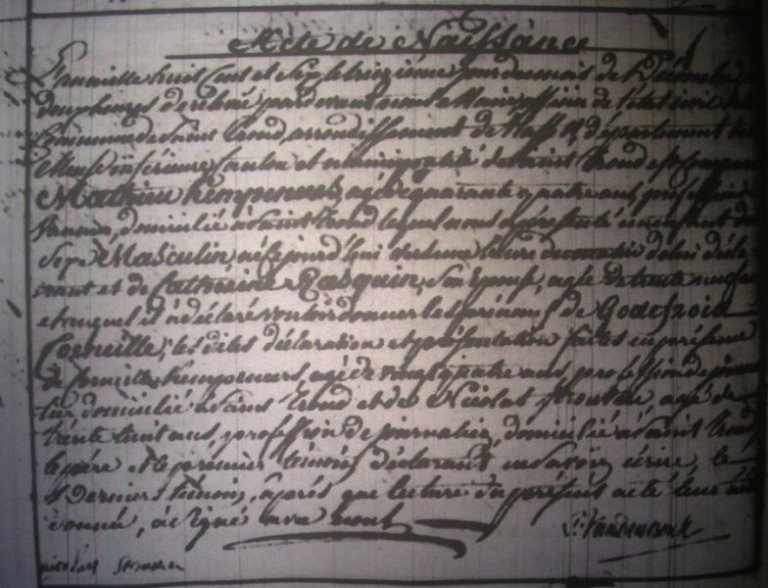 Acte de Naissance
L'an mille huit cent et sept le treizième jour du mois de Décembre à
heures de relevé pardevant nous Maire officier de l'état civil de la
Commune de Saint Trond, arrondissement de Hasselt, département de
Meuse inférieure, Canton et municipalité de Saint Trond est comparu
Mathieu Kempeneers, agé de quarante quatre ans, profession
domicilié à Saint Trond lequel nous a présenté un enfant du
Sexe Masculin, né ce jour d'hui à heure de de lui décla-
rant et de Catherine Rasquin, son Epouse, agée de trente neuf ans
et auquel il a déclaré vouloir donner les prénoms de Godefroid
Corneille, les dites déclaration et présentation faites en présence
de Corneille Kempeneurs agé de vingt quatre ans, profession de journa-
lier domicilié à Saint Trond et de Nicolas agé de
trente huit ans, profession de journalier, domicilié à Saint Trond
le père et le premier témoin déclarant ne savoir écrire, le
dernier témoin, après que lecture du présent acte leur a été
donnée, à signé avec nous
nicolas